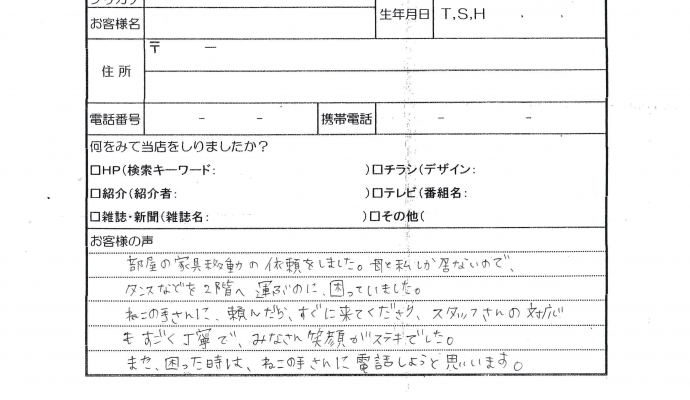 フリガナ
お客様名
生年月日 T,S,H . .
住所 〒 ー
電話番号 - - 携帯電話 - -
何をみて当店をしりましたか?
□HP(検索キーワード: )□チラシ(デザイン:
□紹介(紹介者: )□テレビ(番組名:
□雑誌・新聞(雑誌名: )□その他(
お客様の声
部屋の家具移動の依頼をしました。母と私しか居ないので、
タンスなどを2階へ運ぶのに、困っていました。
ねこの手さんに、頼んだら、すぐに来てくださり、スタッフさんの対応
もすごく丁寧で、みなさん笑顔がステキでした。
また、困った時は、ねこの手さんに電話しようと思います。